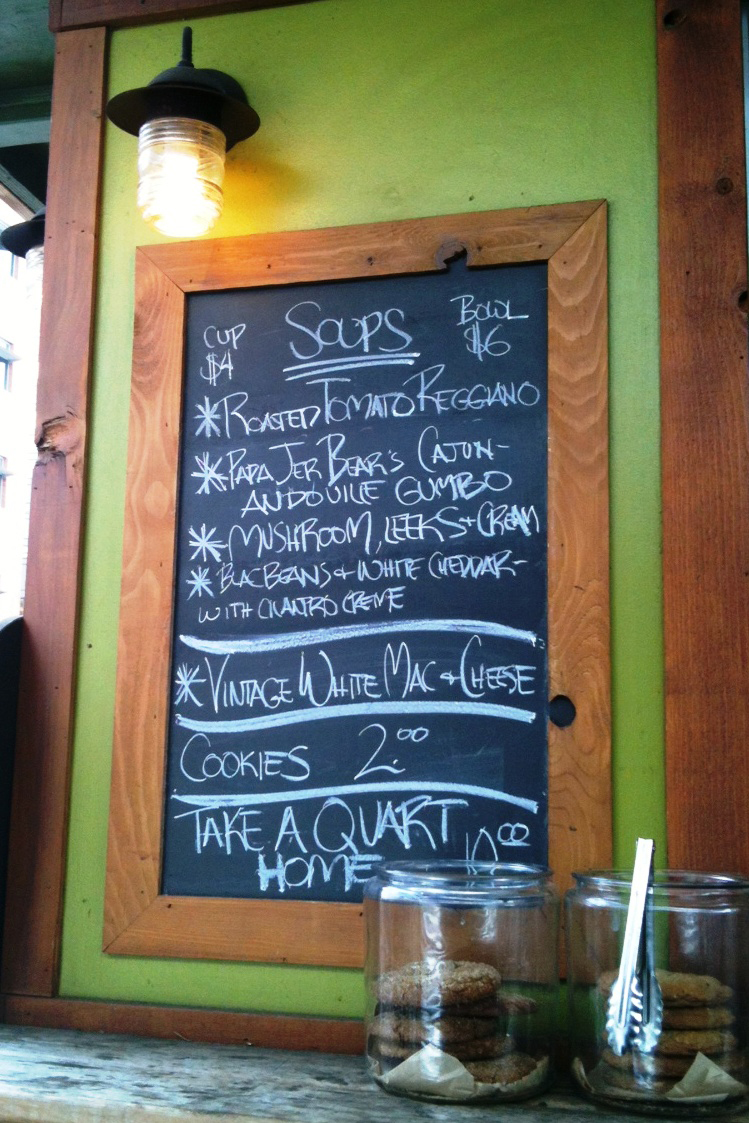 CUP SOUPS BOWL
$4 $6
*ROASTED TOMATO REGGIANO
*PAPA JER BEAR'S CAJUN-
ANDOUILE GUMBO
*MUSHROOM, LEEKS + CREAM
*BLACBEANS & WHITE CHEDDAR-
WITH CILANTRO CREME
*VINTAGE WHITE MAC & CHEESE
COOKIES 2.00
TAKE A QUART
HOME 10.00